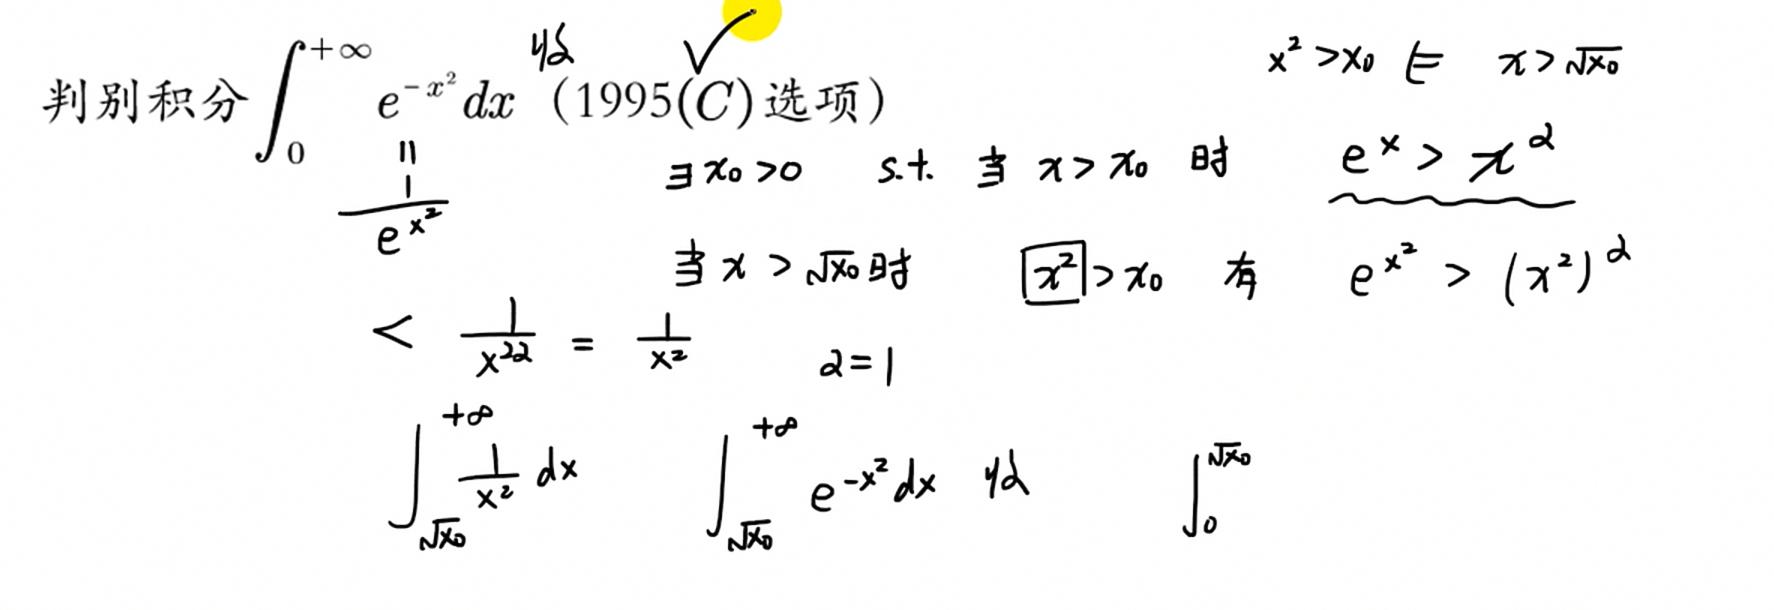 判别积分∫₀^{+∞} e^{-x²} dx 收 (1995(C)选项) ✓
x² > x₀ ⇐ x > √x₀
= 1/e^{x²}
∃ x₀ > 0 s.t. 当 x > x₀ 时 e^x > x^α
当 x > √x₀ 时 x² > x₀ 有 e^{x²} > (x²)^α
< 1/x^{2α} = 1/x² α = 1
∫_{√x₀}^{+∞} 1/x² dx ∫_{√x₀}^{+∞} e^{-x²} dx 收 ∫₀^{√x₀}